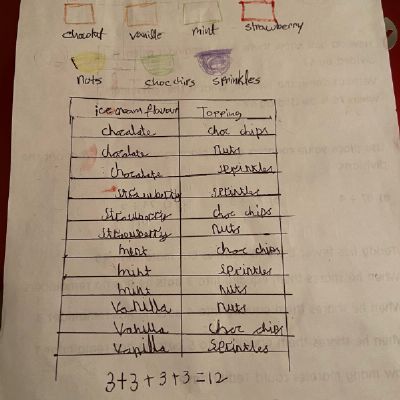 chocolat vanille mint strawberry
nuts choc chirs sprinkles
ice cream flavour Topping
chocolate choc chips
chocolate nuts
chocolate sprinkles
strawberry sprinkles
strawberry choc chips
strawberry nuts
mint choc chips
mint sprinkles
mint nuts
Vanilla nuts
Vanilla choc chips
Vanilla Sprinkles
3+3+3+3=12